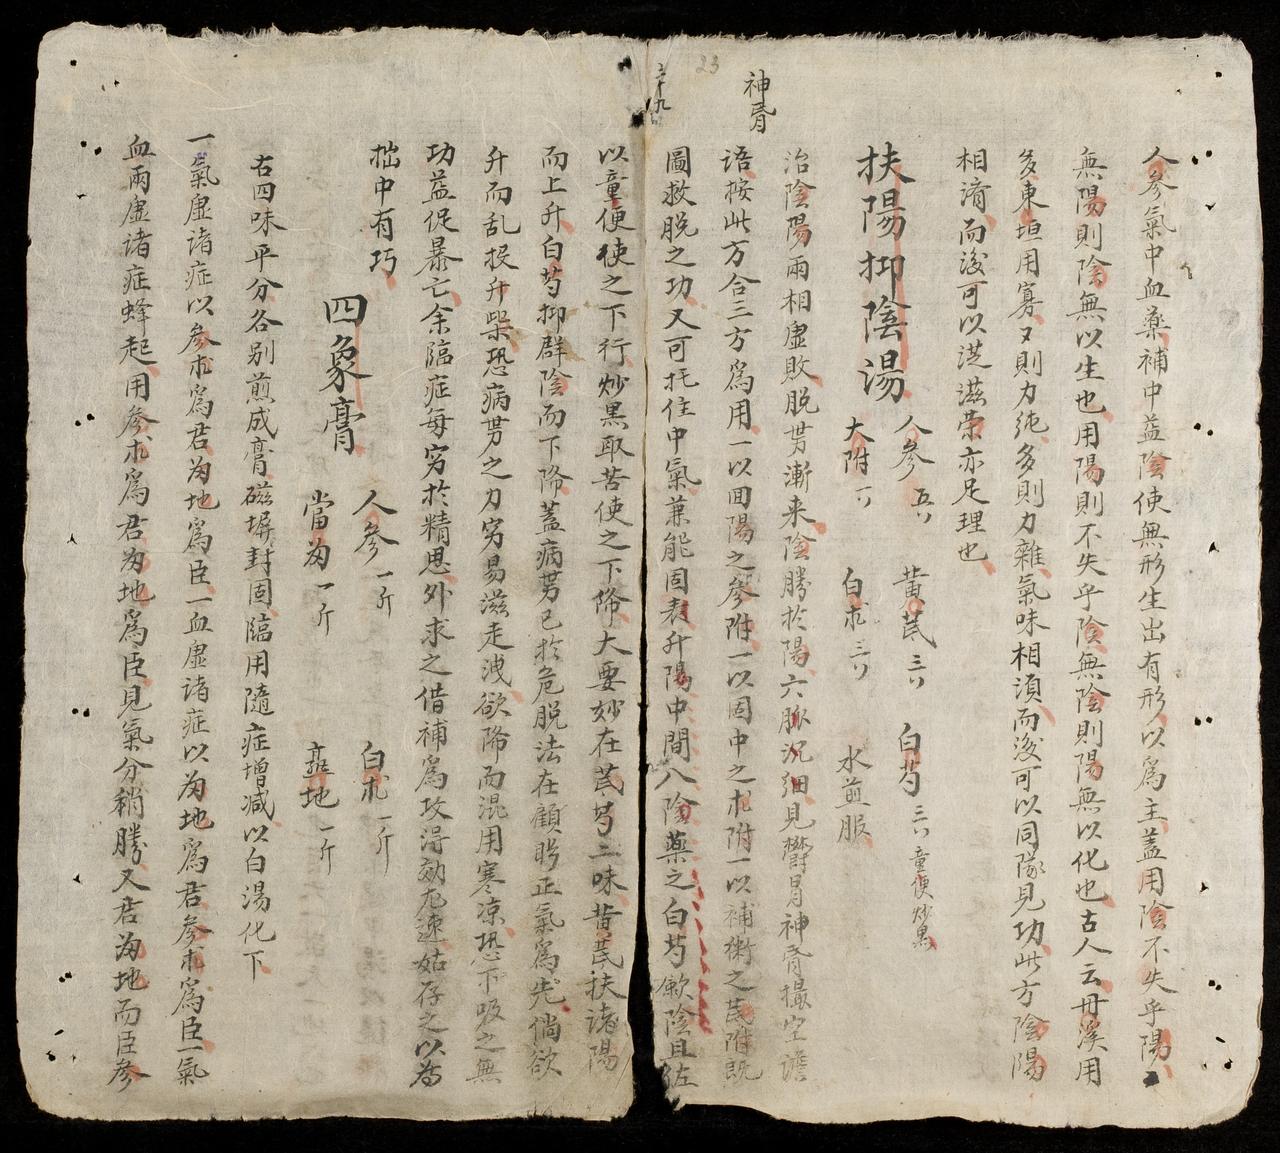 人參氣中血藥補中益陰使無形生出有形以爲主蓋用陰不失乎陽
無陽則陰無以生也用陽則不失乎陰無陰則陽無以化也古人云丹溪用
多東垣用寡又則力純多則力雜氣味相須而後可以同隊見功此方陰陽
相濟而後可以滋榮亦足理也
扶陽抑陰湯
人參 五 黃芪 三 白芍 三 童便炒黑
大附 白朮 三 水煎服
神昏
治陰陽兩相虛敗脱勢漸来陰勝於陽六脈沉細見欝冒神昏撮空譫
語按此方合三方爲用一以囬陽之參附一以固中之朮附一以補衛之芪附既
圖救脱之功又可托住中氣兼能固表升陽中間八陰藥之白芍歛陰且佐
23
以童便使之下行炒黑取苦使之下降大要妙在芪芍二味黃芪扶諸陽
而上升白芍抑群陰而下降蓋病勢已於危脱法在顧盻正氣爲先倘欲
升而乱投升柴恐病勢之力穷易滋走洩欲降而混用寒凉恐下吸之無
功益促暴亡余臨症每穷於精思外求之借補爲攻淂効尤速姑存之以為
拙中有巧
四象膏
人參 一斤 白朮 一斤
當為 一斤 熟地 一斤
右四味平分各别煎成膏磁堀封固臨用隨症增减以白湯化下
一氣虛诸症以參朮爲君為地爲臣一血虛诸症以為地爲君參朮爲臣一氣
血兩虛诸症蜂起用參朮爲君為地爲臣見氣分稍勝又君為地而臣參